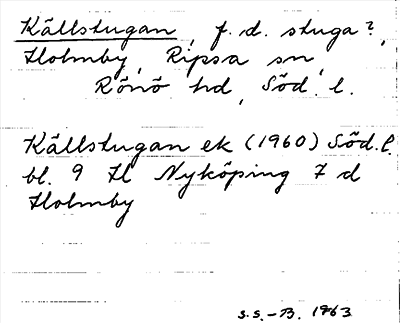 Källstugan, f.d. stuga?,
Holmby, Ripsa sn,
Rönö hd, Söd. l.
Källstugan ek (1960) Söd. l.
bl. 9 H Nyköping 7 d
Holmby
S.S.-B. 1963